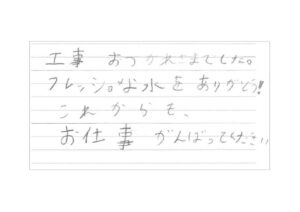 工事 おつかれさまでした。
フレッシュな水をありがとう!
これからも、
お仕事 がんばってください